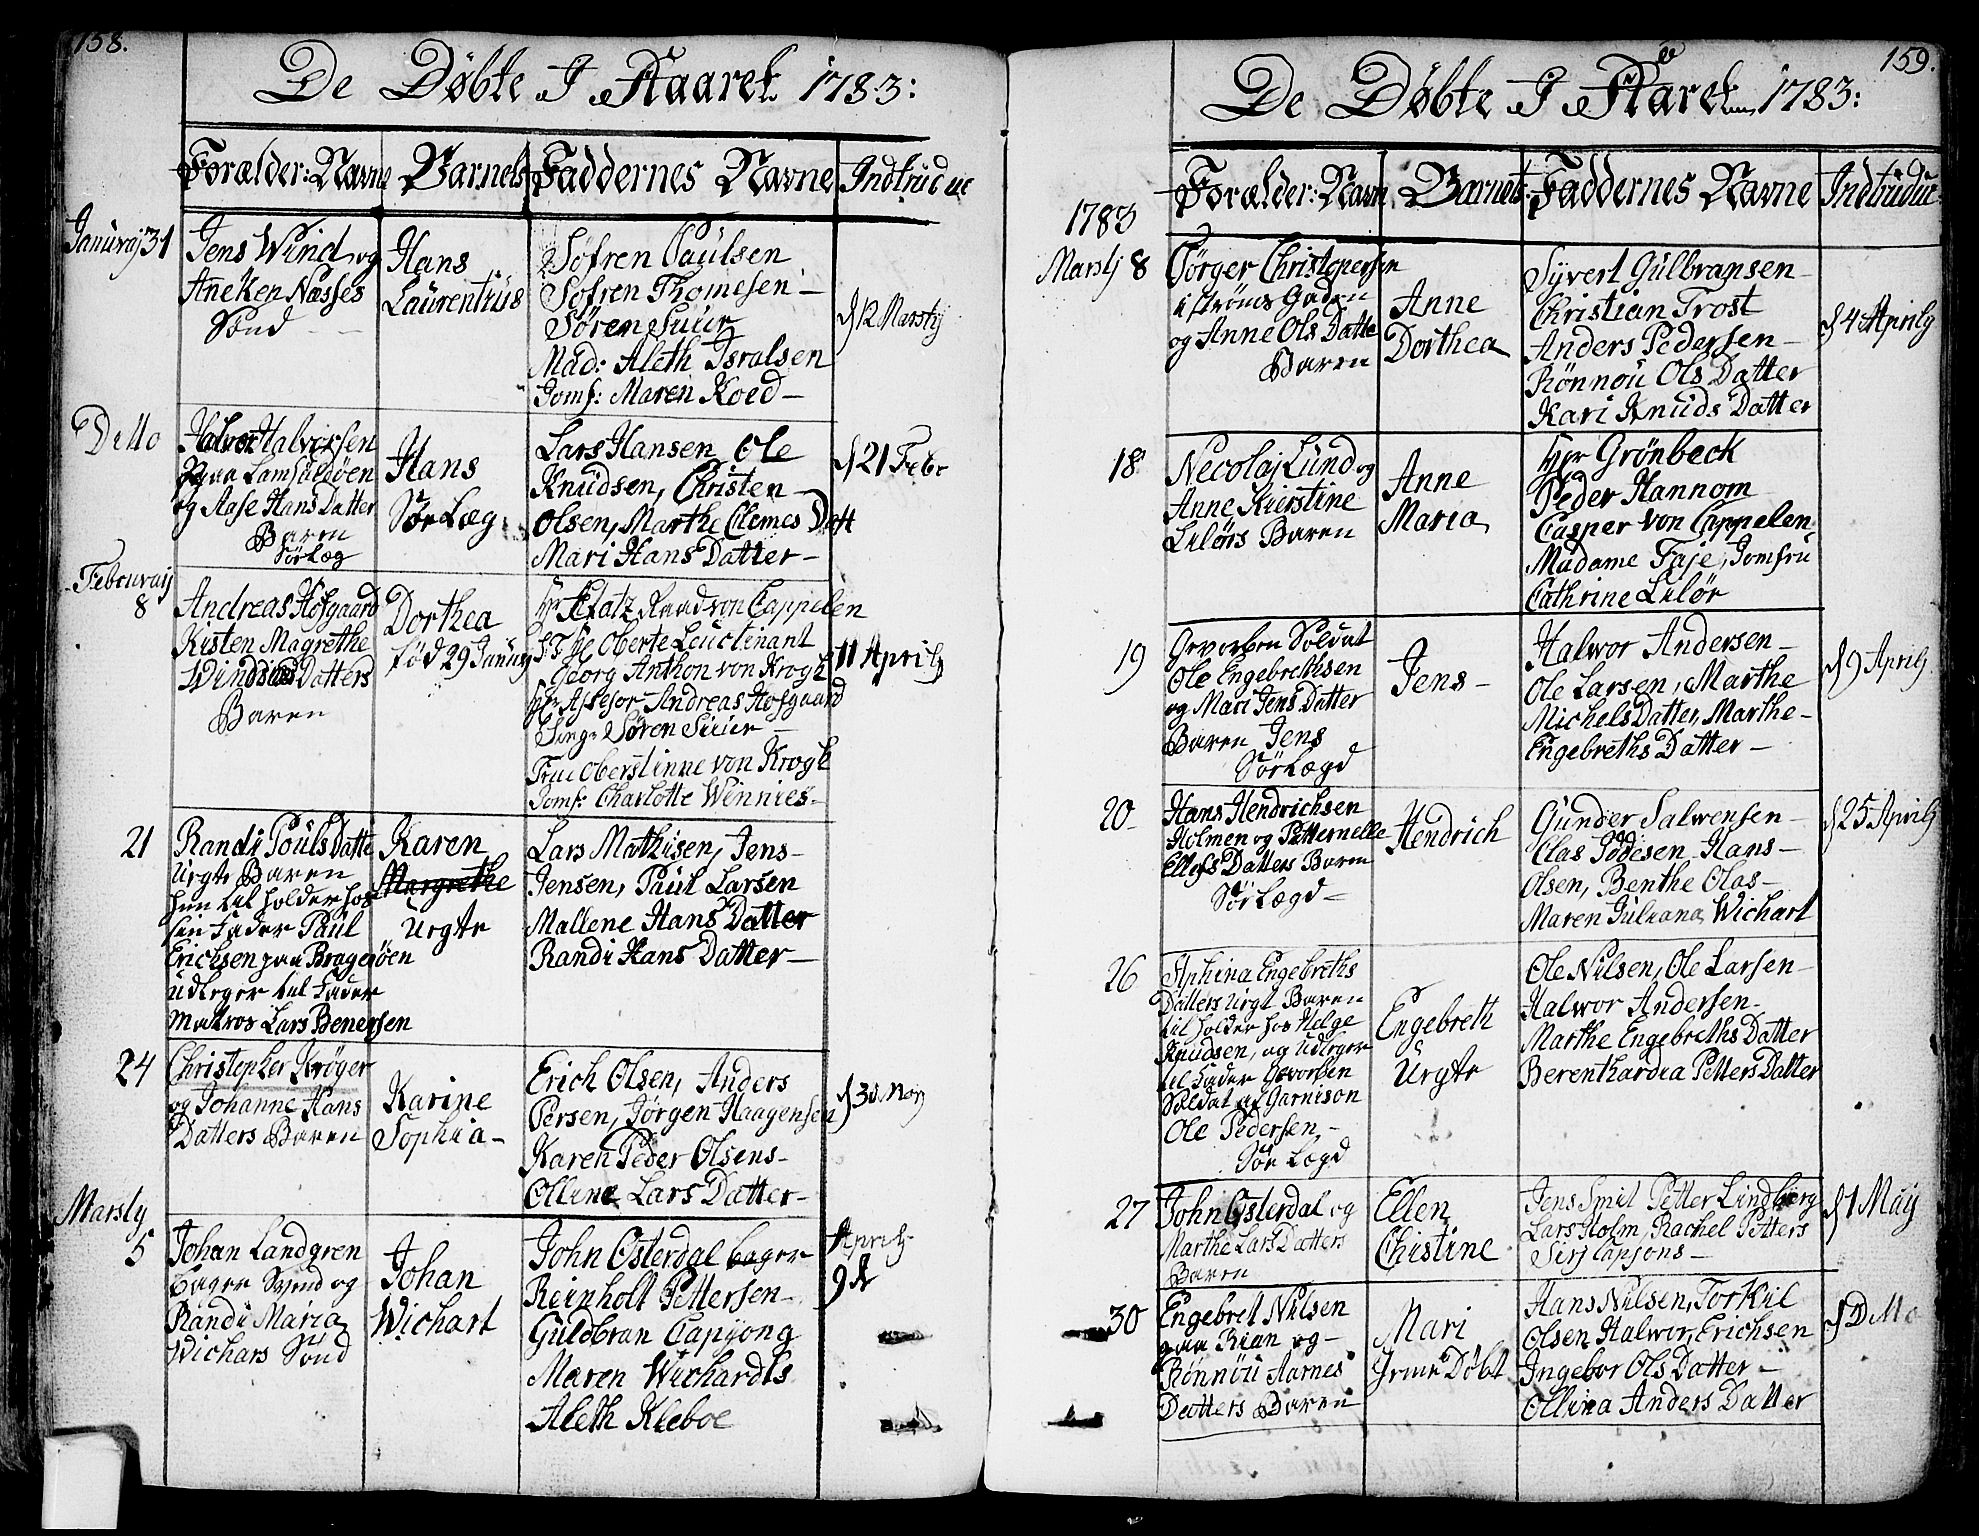 158.
De Døbte I Aaaret 1783:
Forælder: Navne Barnets Faddernes Navne Indtrud ue
Januarj 31
Jens Wind og
Aneken Næsses
Sønd
Hans
Laurentius
Søfren Paulsen
Søfren Thomesen
Søren Suur
Mad: Aleth Isralsen
Jomf: Maren Koed
d 12 Martij
Ditto
Halvor Halvorsen
paa
og Aase Hans Datter
Baren
Sørlæg
Hans
SørLæg
Lars Hansen Ole
Knudsen, Christen
Olsen, Marthe Clemes Datt
Mari Hans Datter
d 21 Febr
Februarij
8
Andreas Hofgaard
Kirsten Magrethe
Datters
Baren
Dorthea
fød 29 Januarj
Hr Raad von Cappelen
Oberste Leuctinant
Georg Anthon von Krogh
Hr Assesor Andreas Hofgaard
Sieg: Søren Suur
Frue Oberstinne von Krogh
Jomf: Charlotte Winnies
11 Aprily
21
Randi Pouls Datte
Urgte Baren
hun til holder hos
sin Fader Paul
Erichsen paa Bragerøen
udleger til Fader
Matros Lars Benersen
Karen
Margrethe
Urgte
Lars Mathisen, Jens
Jensen, Paul Larsen
Mallene Hans Datter
Randi Hans Datter
24
Christopher Krøger
og Johanne Hans
Datters Baren
Karine
Sophia
Erich Olsen, Anders
Persen, Jørgen Haagensen
Karen Peder Olsens
Olline Lars Datter
d 30 May
Marsly
5
Johan Landgren
Bager Svend og
Randi Maria
Wichars Sønd
Johan
Wichart
John Osterdal bager
Reinholt Pettersen
Guldbran Capjong
Maren Wichardts
Aleth Kleboe
Aprily
9 d
159.
De Døbte I Aaret 1783:
Forælder: Navn Barnets Faddernes Navne Indtrudue
1783
Marsly 8
Jørger Christopersen
i Strøms Gaden
og Anne Ols Datte
Baren
Anne
Dorthea
Syvert Gulbransen
Christian Trost
Anders Pedersen
Rønnou Ols Datter
Kari Knuds Datter
d 4 Aprily
18
Necolaj Lund og
Anne Kierstine
Leløis Baren
Anne
Maria
Hr Grönbeck
Peder Hannom
Casper von Cappelen
Madame Faje, Jomfru
Cathrine Leløv
19
Gevorben Soldat
Ole Engebrethsen
og Mari Jens Datter
Baren Jens
Sørlægd
Jens
Halwor Andersen
Ole Larsen, Marthe
Michels Datter, Marthe
Engebreths Datter
d 9 Aprily
20
Hans Hendrichsen
Holmen og Petternelle
Ellefs Datters Baren
SørLægd
Hendrich
Gunder Salwensen
Clas Pedesen Hans
Olsen, Benthe Olas
Maren Juliana Wichart
d 25 Aprily
26
Engebreths
Datters Urgt Baren
til holder hos Helge
Knudsen, og udleger
til Fader Gevorben
Soldat af Garnison
Ole Pedersen
Sør Lægd
Engebreth
Urgte
Ole Nilsen, Ole Larsen
Halwor Andersen
Marthe Engebreths Datter
Berenthardia Petters Datter
27
John Osterdal og
Marthe Lars Datters
Baren
Ellen
Chistine
Jens Smit Petter Lindberg
Lars Holm, Rachel Petters
Sirj Capjons
d 1 Maij
30
Engebret Nilsen
paa Rian og
Rønnou Aarnes
Datters Baren
Mari
Døbt
Hans Nilsen, Torkil
Olsen Halwor, Erichsen
Ingebor Ols Datter
Ollina Anders Datter
d Ditto